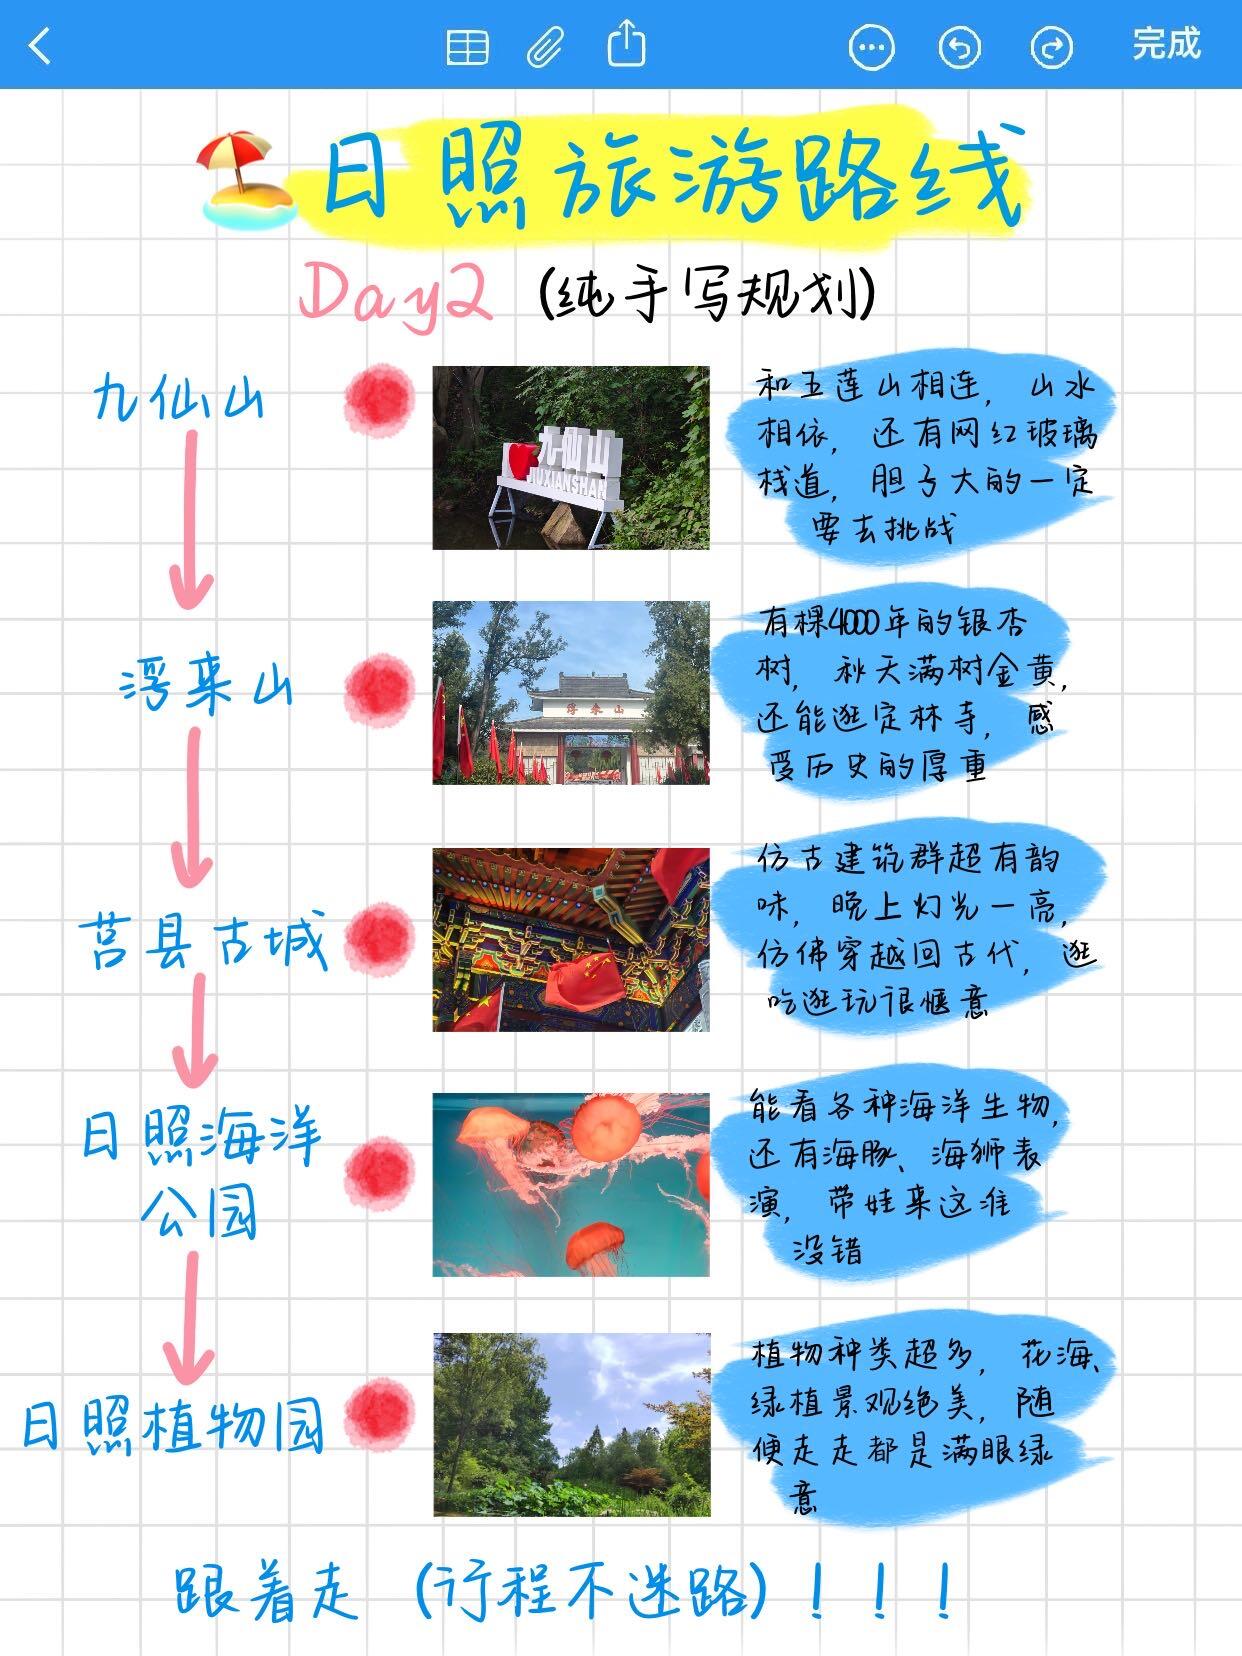 完成
日照旅游路线
Day2 (纯手写规划)
九仙山
九仙山
JIUXIANSHAN
和五莲山相连, 山水
相依, 还有网红玻璃
栈道, 胆子大的一定
要去挑战
浮来山
浮来山
有棵4000年的银杏
树, 秋天满树金黄,
还能逛定林寺, 感
受历史的厚重
莒县古城
仿古建筑群超有韵
味, 晚上灯光一亮,
仿佛穿越回古代, 逛
吃逛玩很惬意
日照海洋
公园
能看各种海洋生物,
还有海豚、海狮表
演, 带娃来这准
没错
日照植物园
植物种类超多, 花海、
绿植景观绝美, 随
便走走都是满眼绿
意
跟着走 (行程不迷路) ! ! !